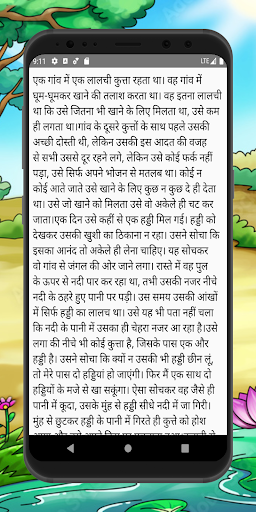 9:11
LTE
एक गांव में एक लालची कुत्ता रहता था। वह गांव में
घूम-घूमकर खाने की तलाश करता था। वह इतना लालची
था कि उसे जितना भी खाने के लिए मिलता था, उसे कम
ही लगता था।गांव के दूसरे कुत्तों के साथ पहले उसकी
अच्छी दोस्ती थी, लेकिन उसकी इस आदत की वजह
से सभी उससे दूर रहने लगे, लेकिन उसे कोई फर्क नहीं
पड़ा, उसे सिर्फ अपने भोजन से मतलब था। कोई न
कोई आते जाते उसे खाने के लिए कुछ न कुछ दे ही देता
था। उसे जो खाने को मिलता उसे वो अकेले ही चट कर
जाता।एक दिन उसे कहीं से एक हड्डी मिल गई। हड्डी को
देखकर उसकी खुशी का ठिकाना न रहा। उसने सोचा कि
इसका आनंद तो अकेले ही लेना चाहिए। यह सोचकर
वो गांव से जंगल की ओर जाने लगा। रास्ते में वह पुल
के ऊपर से नदी पार कर रहा था, तभी उसकी नजर नीचे
नदी के ठहरे हुए पानी पर पड़ी। उस समय उसकी आंखों
में सिर्फ हड्डी का लालच था। उसे यह भी पता नहीं चला
कि नदी के पानी में उसका ही चेहरा नजर आ रहा है।उसे
लगा की नीचे भी कोई कुत्ता है, जिसके पास एक और
हड्डी है। उसने सोचा कि क्यों न उसकी भी हड्डी छीन लूं,
तो मेरे पास दो हड्डियां हो जाएंगी। फिर मैं एक साथ दो
हड्डियों के मजे से खा सकूंगा। ऐसा सोचकर वह जैसे ही
पानी में कूदा, उसके मुंह से हड्डी सीधे नदी में जा गिरी।
मुंह से छुटकर हड्डी के पानी में गिरते ही कुत्ते को होश